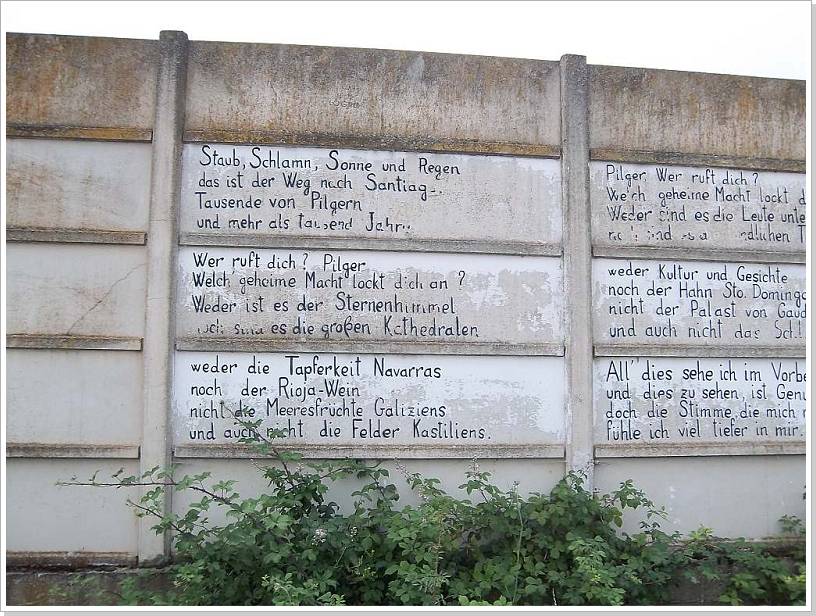 Staub, Schlamn, Sonne und Regen
das ist der Weg nach Santiag
Tausende von Pilgern
und mehr als tausend Jahr
Wer ruft dich? Pilger
Welch geheime Macht lockt dich an ?
Weder ist es der Sternenhimmel
noch sind es die großen Kathedralen
weder die Tapferkeit Navarras
noch der Rioja-Wein
nicht die Meeresfrüchte Galiziens
und auch nicht die Felder Kastiliens.
Pilger, Wer ruft dich ?
Welch geheime Macht lockt d
Weder sind es die Leute unte
sind es
weder Kultur und Gesichte
noch der Hahn Sto. Domingo
nicht der Palast von Gaud
und auch nicht das
All' dies sehe ich im Vorbe
und dies zu sehen, ist Genu
doch die Stimme, die mich r
fühle ich viel tiefer in mir.